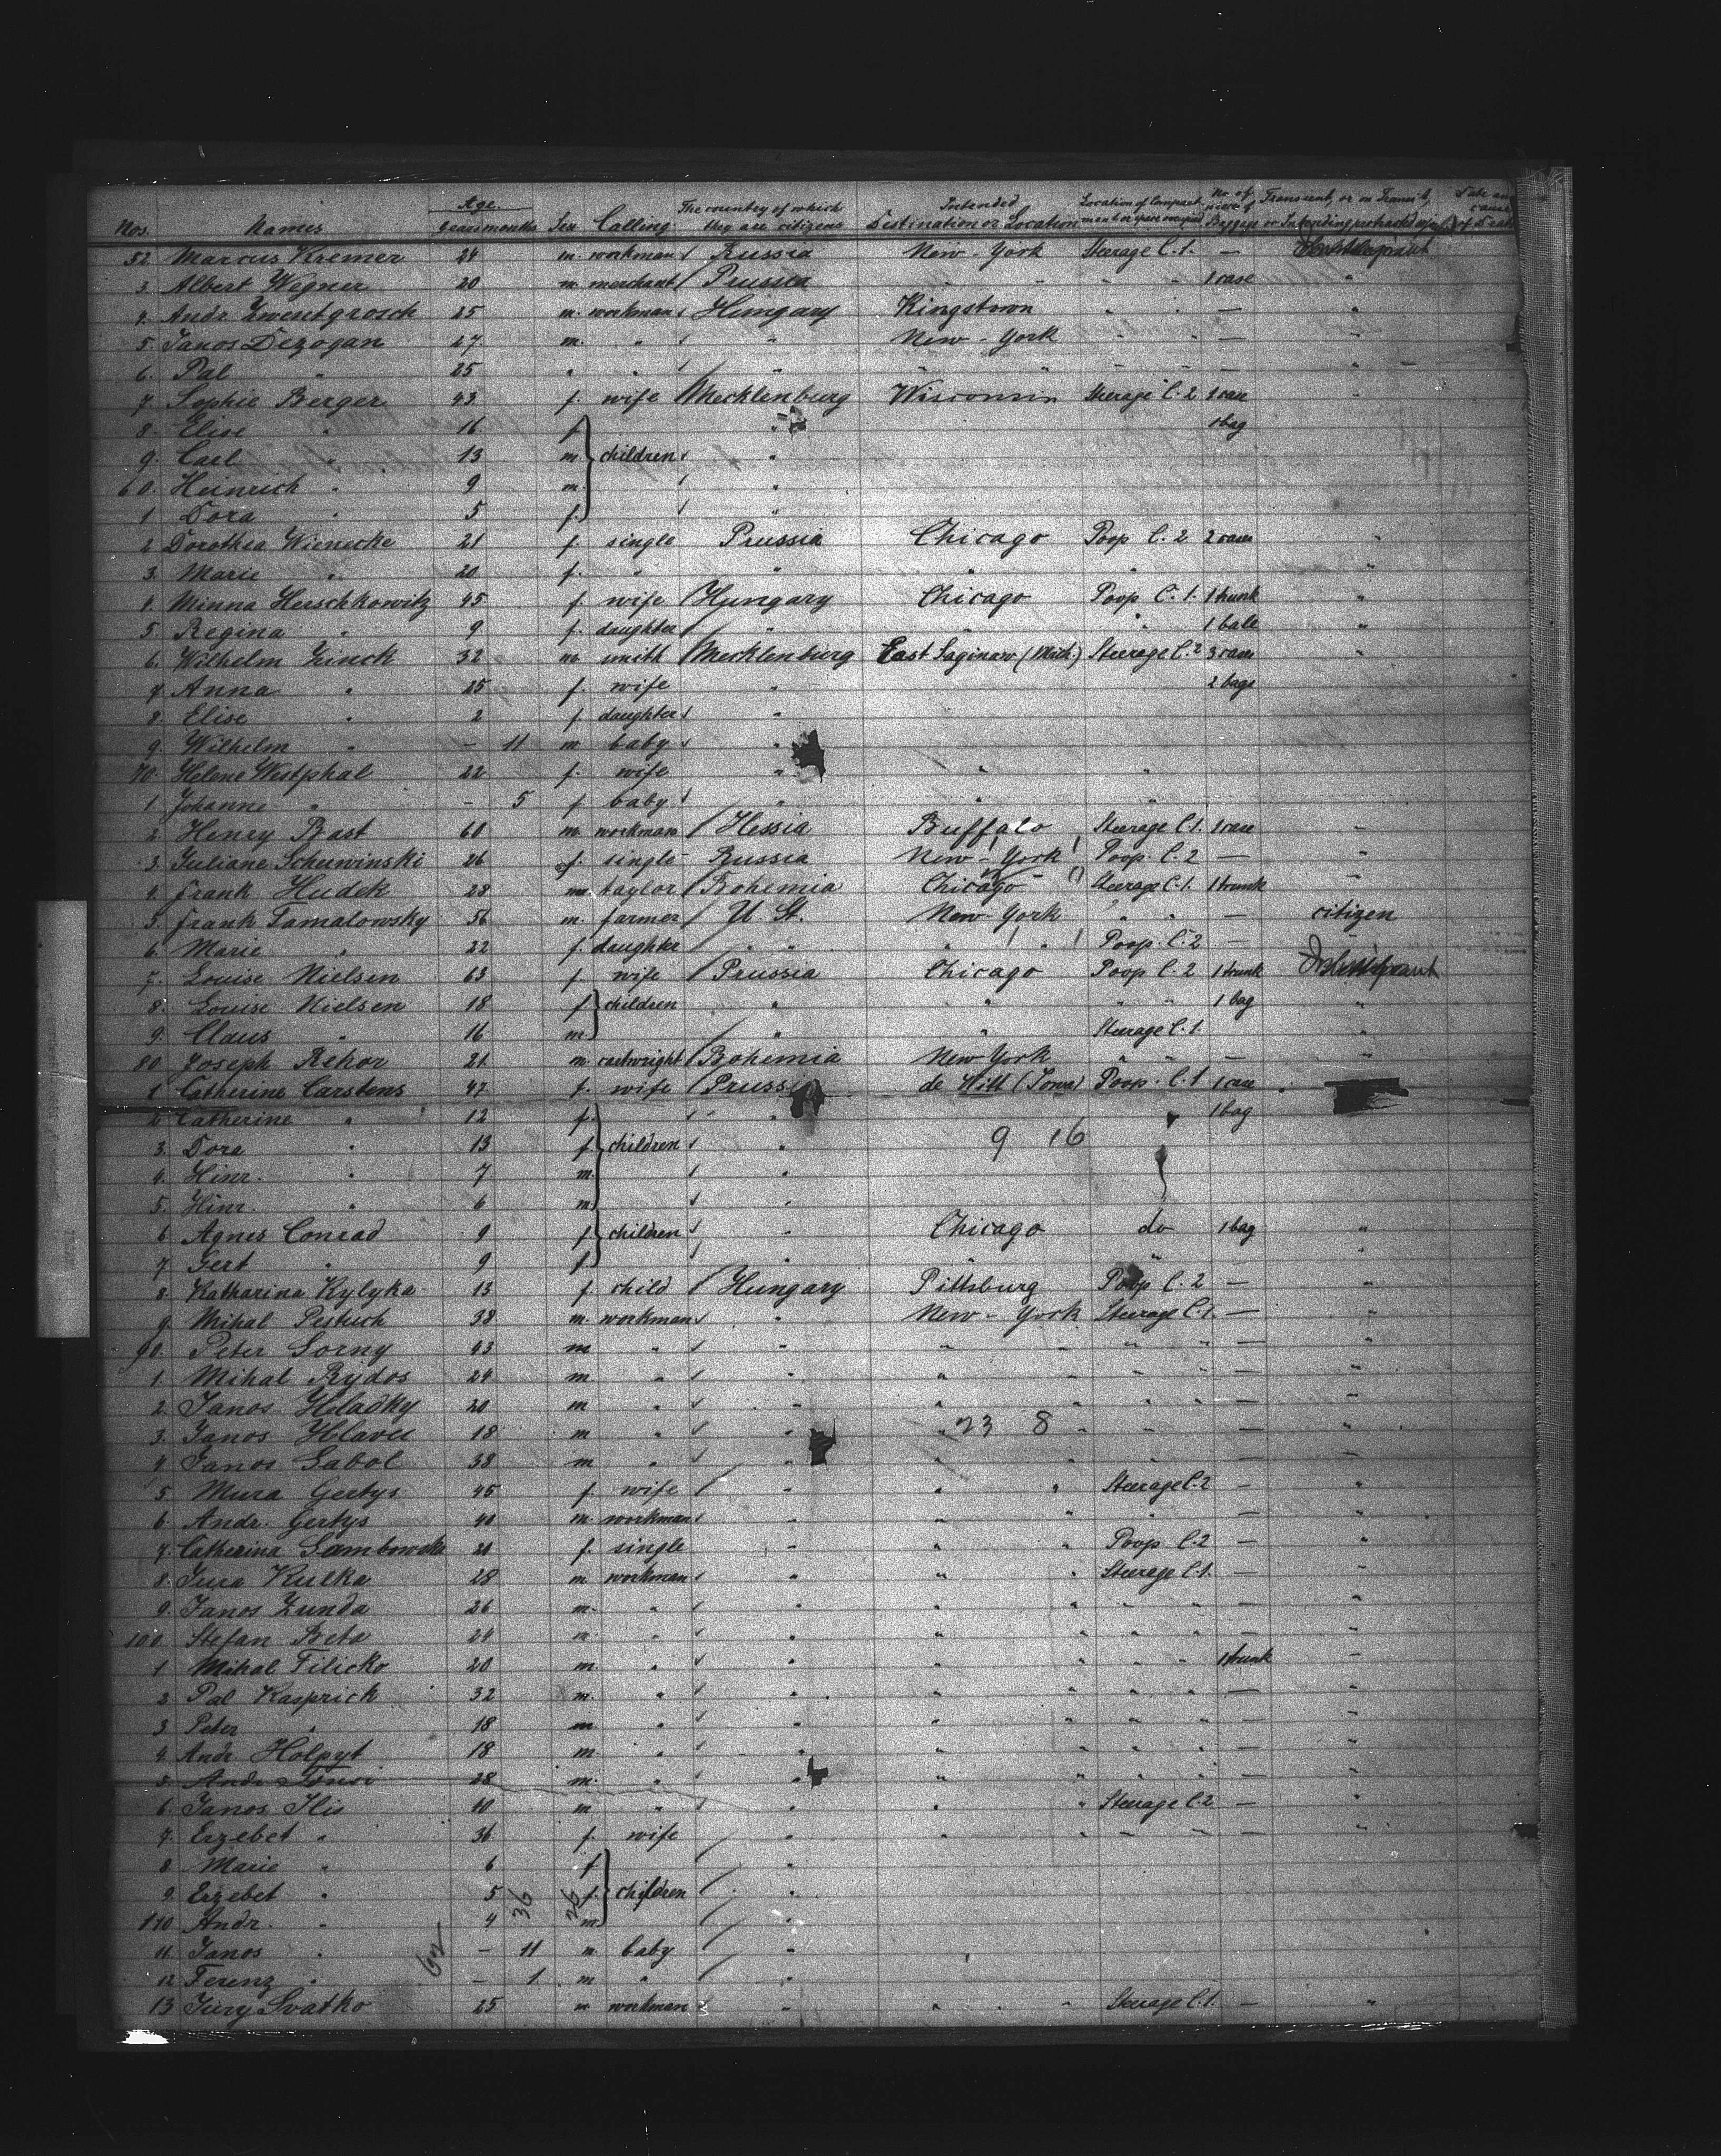 Nos. Names Age. years months Sex Calling The country of which they are citizens Intended Destination or Location Location of Compartment or space occupied No. of pieces of Baggage Transient, or in Transit, or Intending protracted
52 Marcus Kremer 24 m. workman Russia New-York Steerage C.1. —
3. Albert Wegner 20 m. merchant Prussia " " " " 1 case "
4. Andr. Zwesetgrosch 25 m. workman Hungary Kingstown " " — "
5. Janos Dezogan 27 m. " " New-York " " — "
6. Pal " 25 " " " " " " " — "
7. Sophie Berger 43 f. wife Mecklenburg Wisconsin Steerage C.2 1 case "
8. Elise " 16 f. " 1 bag
9. Carl " 13 m. children "
60. Heinrich " 9 m. "
1 Dora " 5 f. "
2 Dorothea Wienecke 21 f. single Prussia Chicago Poop C.2 2 cases "
3. Marie " 20 f. " " " " "
4. Minna Herschkowitz 45 f. wife Hungary Chicago Poop C.1. 1 trunk "
5. Regina " 9 f. daughter " " " 1 bale "
6. Wilhelm Zinck 32 m smith Mecklenburg East Saginaw (Mich.) Steerage C.2 3 cases "
7. Anna " 25 f. wife " 2 bags
8. Elise " 2 f. daughter "
9. Wilhelm " — 11 m baby "
70. Helene Westphal 22 f. wife " " "
1. Johanne " — 5 f baby " " "
2. Henry Bast 60 m. workman Hessia Buffalo Steerage C.1. 1 case "
3. Juliane Schuwinski 26 f. single Russia New-York Poop. C.2 — "
4. Frank Hudek 28 m. taylor Bohemia Chicago Steerage C.1. 1 trunk "
5. Frank Tamalowsky 56 m. farmer U. St. New-York " " — citizen
6. Marie " 22 f. daughter " " " " Poop. C.2 —
7. Louise Nielsen 63 f. wife Prussia Chicago Poop C.2 1 trunk
8. Louise Nielsen 18 f children " " " " 1 bag "
9. Claus " 16 m. " " Steerage C.1. "
80 Joseph Rehor 21 m. cartwright Bohemia New York " " — "
1 Catherine Carstens 47 f. wife Prussia de Witt (Iowa) Poop. C.1 1 case "
2 Catherine " 12 f. " 1 bag
3. Dora " 13 f. children " 9 16
4. Hinr. " 7 m. "
5. Hinr. " 6 m. "
6 Agnes Conrad 9 f children " Chicago do 1 bag "
7 Gert " 9 f " " " "
8. Katharina Kylyka 13 f. child Hungary Pittsburg Poop C.2 — "
9. Mihal Pestuch 38 m. workman " New-York Steerage C.1. — "
90. Peter Gorny 43 m " " " " " " — "
1 Mihal Rydos 24 m " " " " " " — "
2. Janos Hladky 20 m " " " " " " — "
3. Janos Hlavu 18 m " " " 23 8 " " — "
4 Janos Sabol 38 m " " " " " — "
5 Mura Gertys 45 f. wife " " " Steerage C.2 — "
6. Andr. Gertys 40 m. workman " " " " — "
7. Catherina 20 f. single " " " Poop C.2 — "
8. Jura Kulka 28 m workman " " " Steerage C.1. — "
9. Janos Zunda 26 m. " " " " " " — "
100 Stefan Beta 24 m. " " " " " " — "
1 Mihal Filicko 20 m. " " " " " " 1 trunk "
2 Pal Kasprick 32 m. " " " " " " — "
3 Peter " 18 m " " " " " " — "
4. Andr. Holpyt 18 m " " " " " " — "
5. Andr. 28 m. " " " " " " — "
6. Janos Ilis 40 m " " " " Steerage C.2 — "
7. Erzebet " 36 f. wife " " " " " — "
8 Marie " 6 f "
9. Erzebet " 5 f. children "
110 Andr. " 4 m "
11. Janos " — 11 m. baby "
12 Ferenz " — 1 m " "
13 Jury Svatko 25 m workman " " " Steerage C.1. — "
36 26
62